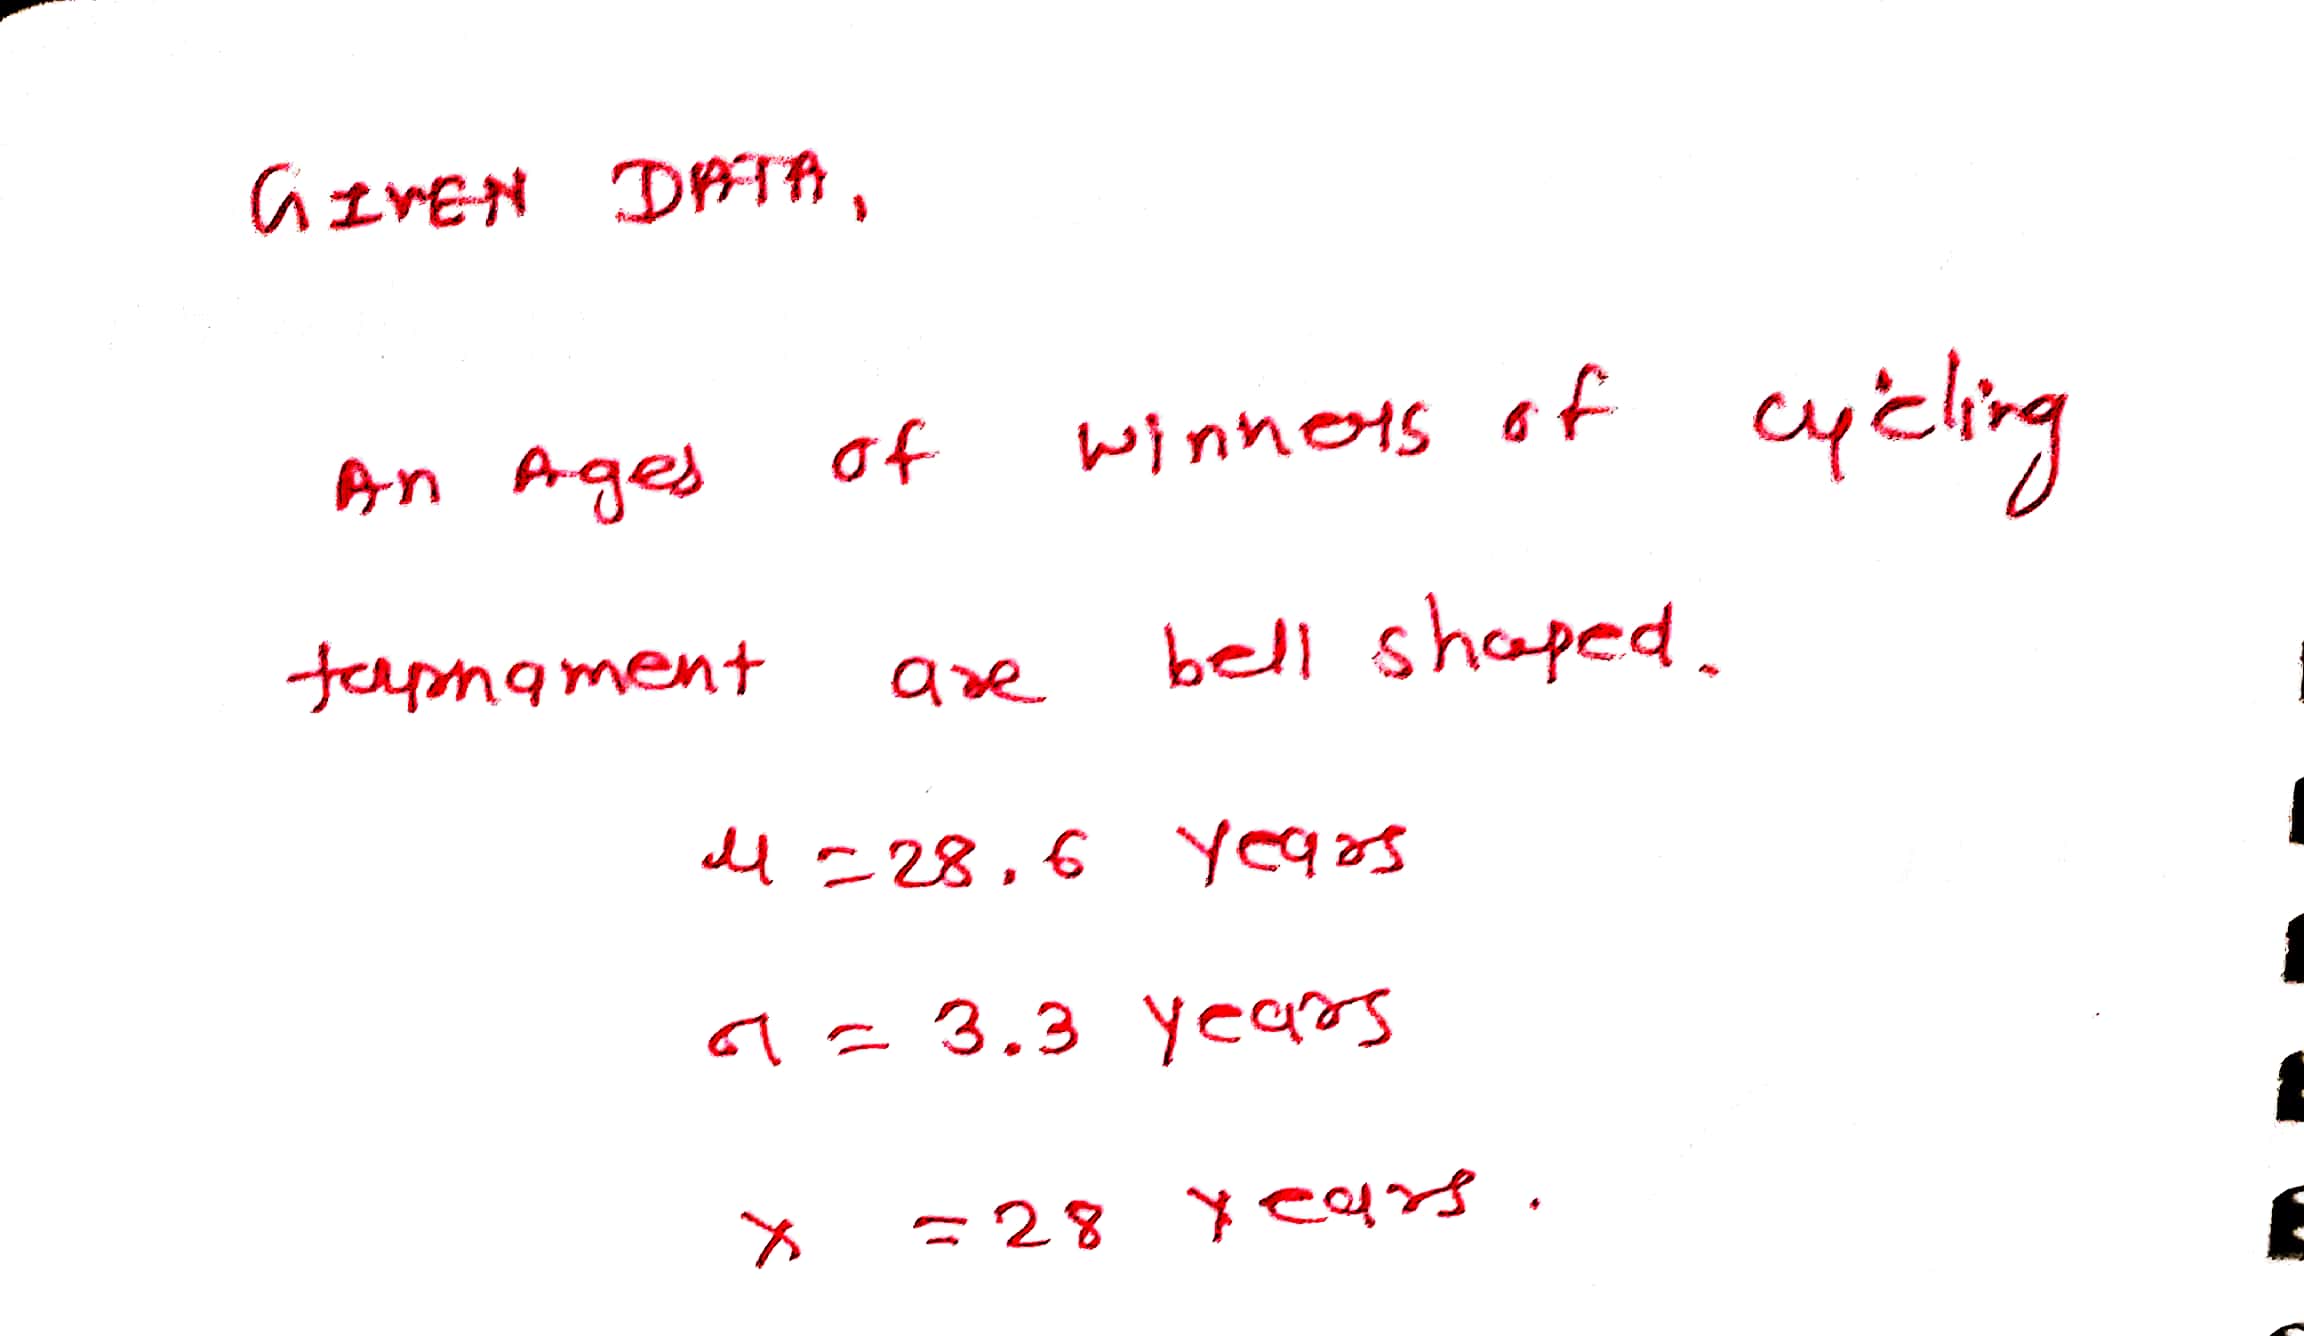 GIVEN DATA,
An Ages of winners of cycling
tournament are bell shaped.
μ = 28.6 years
σ = 3.3 years
x = 28 years.